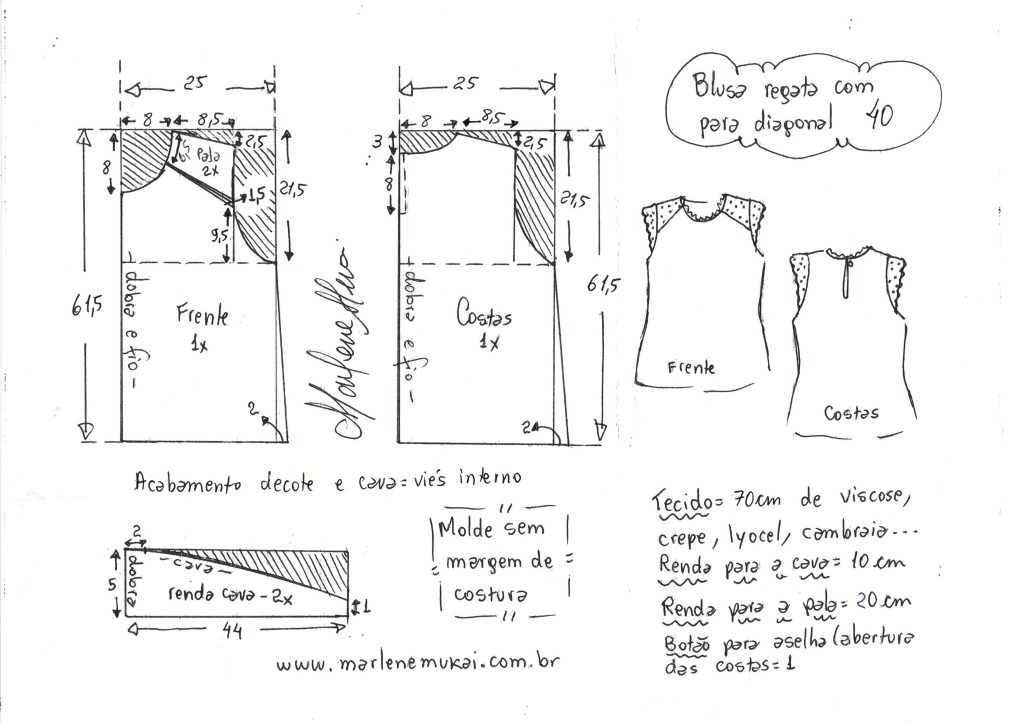 Blusa regata com
para diagonal 40
25
8 8,5
2,5
8
pala
2x
1,5
21,5
9,5
61,5
dobra e fio
Frente
1x
2
25
8 8,5
3
2,5
8
21,5
61,5
dobra e fio
Costas
1x
2
Marlene Mukai
Frente
Costas
Acabamento decote e cava = viés interno
2
5
dobra
cava
renda cava - 2x
1
44
Molde sem
margem de
costura
www.marlenemukai.com.br
Tecido = 70cm de viscose,
crepe, lyocel, cambraia...
Renda para a cava = 10 cm
Renda para a pala = 20 cm
Botão para aselha (abertura
das costas = 1